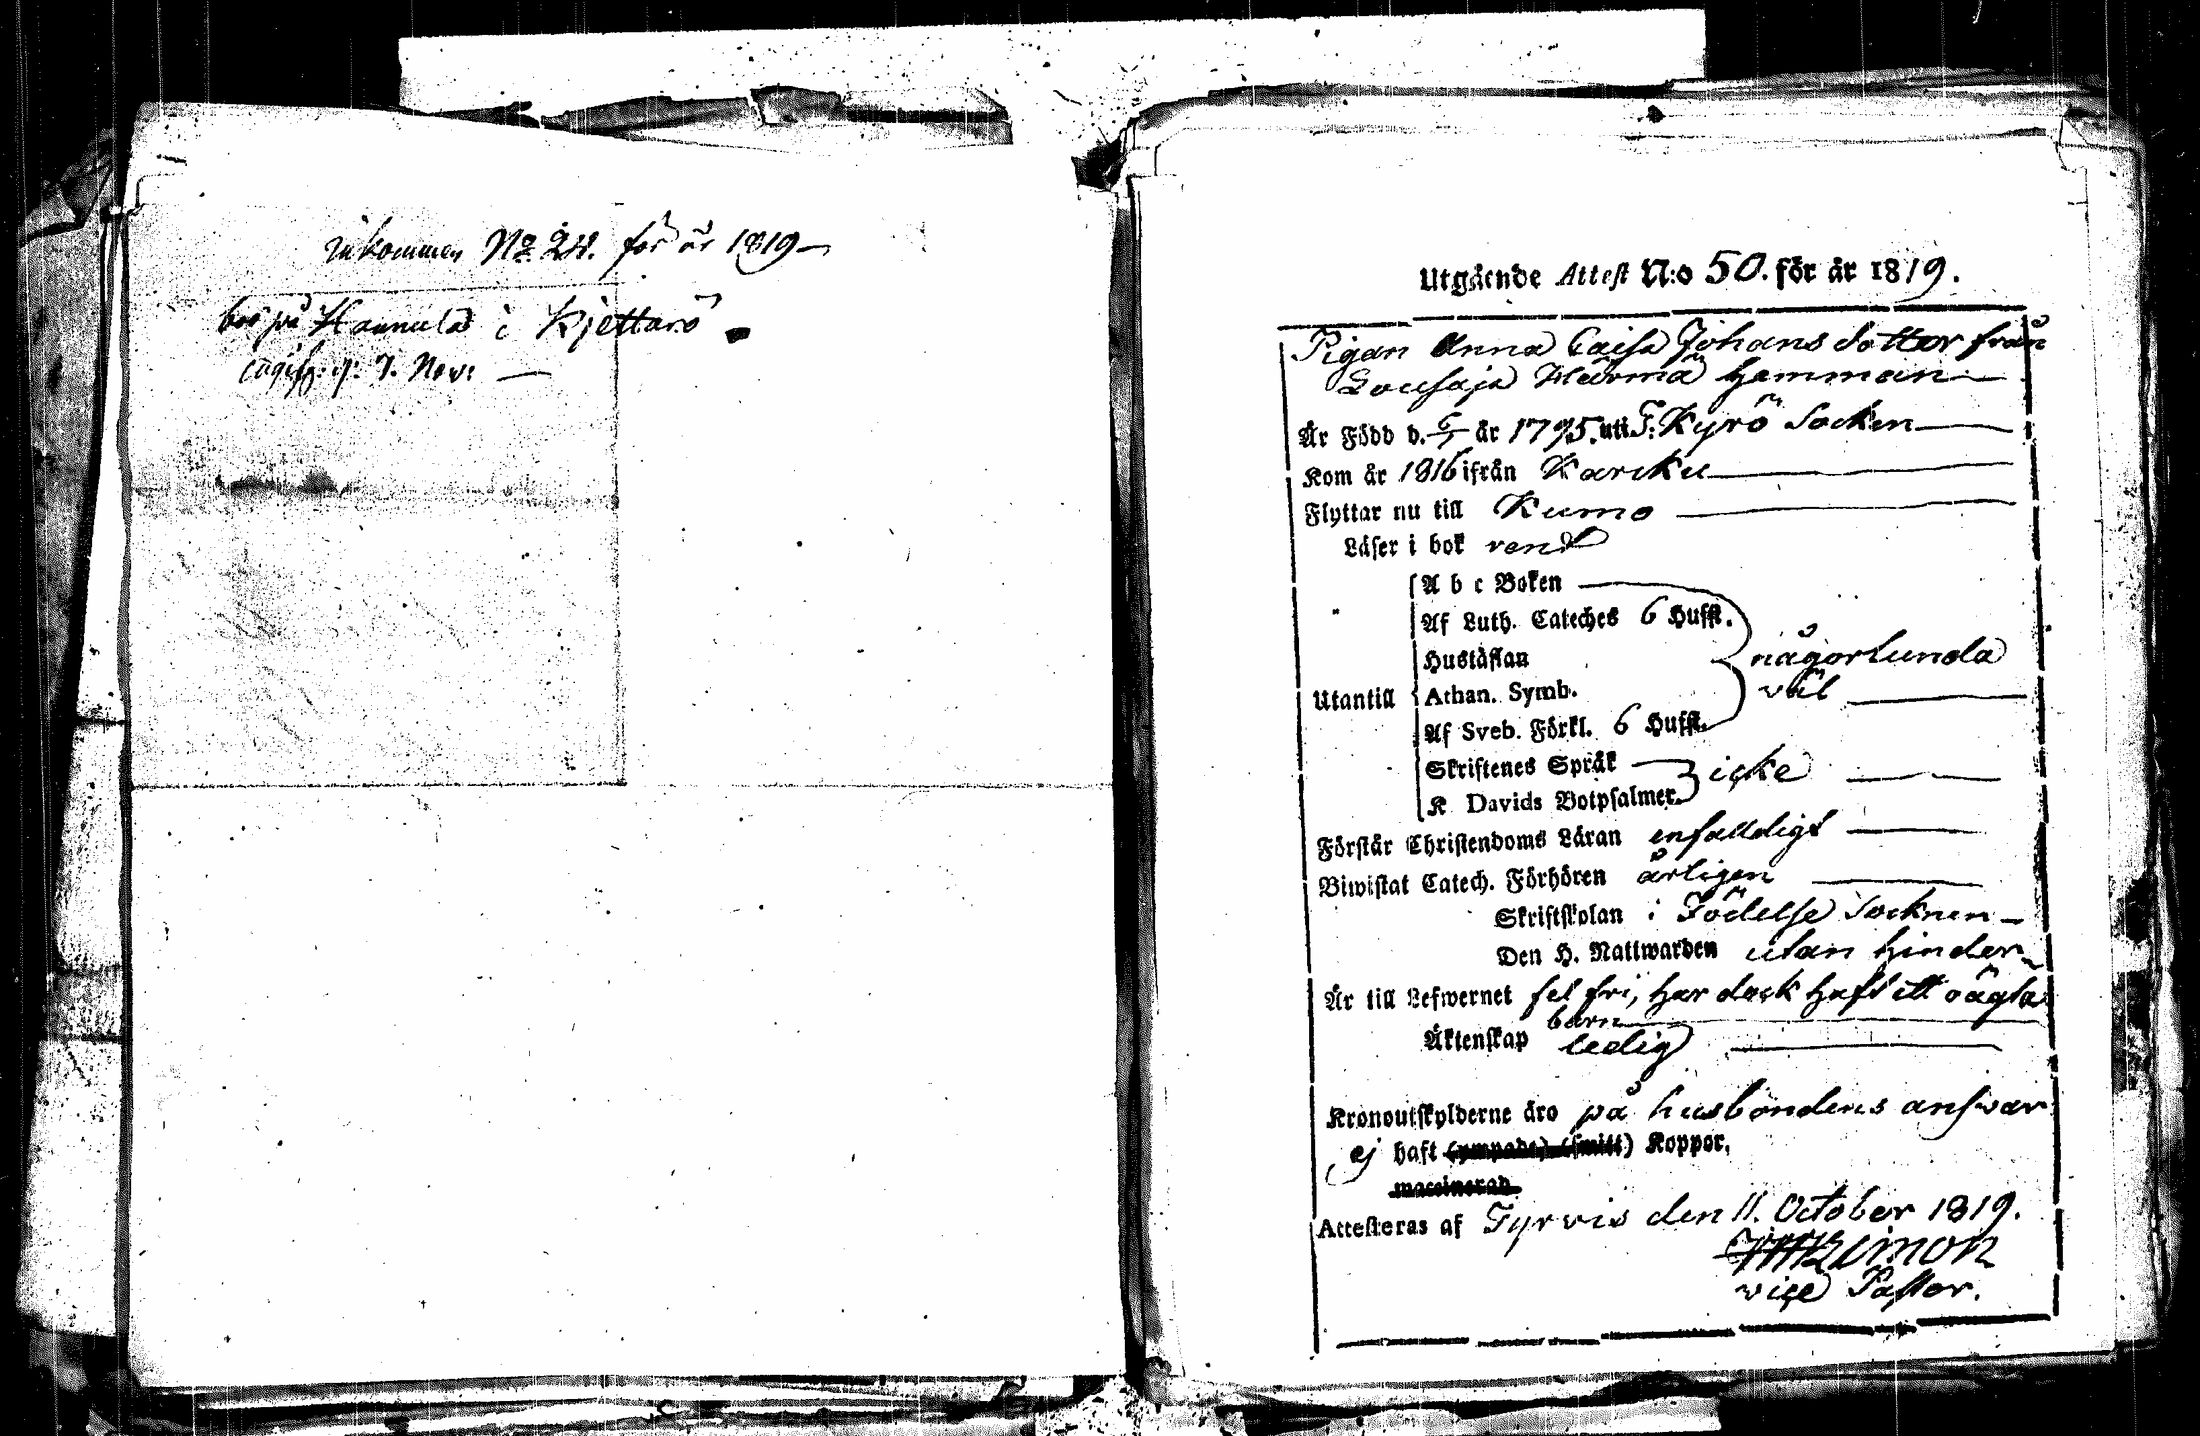 inkommen No 24. för år 1819
bor på Hannula i Kjettarö
7. Nov:
Utgående Attest N:o 50. för år 1819.
Pigan Anna Caisa Johans dotter från
Härmä Hemman
Är Född d. 6/1 år 1795. uti T: Kyrö Socken
Kom år 1816 ifrån Karcku
Flyttar nu till Kumo
Läser i bok rent
A b c Boken
Af Luth. Cateches 6 Hufst.
Hustaflan
någorlunda
Utantill Athan. Symb.
väl
Af Sveb. Förkl. 6 Hufst.
Skriftenes Språk
icke
K Davids Botpsalmer.
Förstår Christendoms Läran enfalldigt
Biwistat Catech. Förhören årligen
Skriftskolan i Födelse Socknen
Den H. Nattwarden utan hinder
Är till Lefwernet fel fri, har dock haft ett oägta
barn
Äktenskap ledig
Kronoutskylderne äro på husbondens answar
ej haft (ympade) (smitt) Koppor,
waccinerad
Attesteras af Tyrvis den 11. October 1819.
vice Pastor.